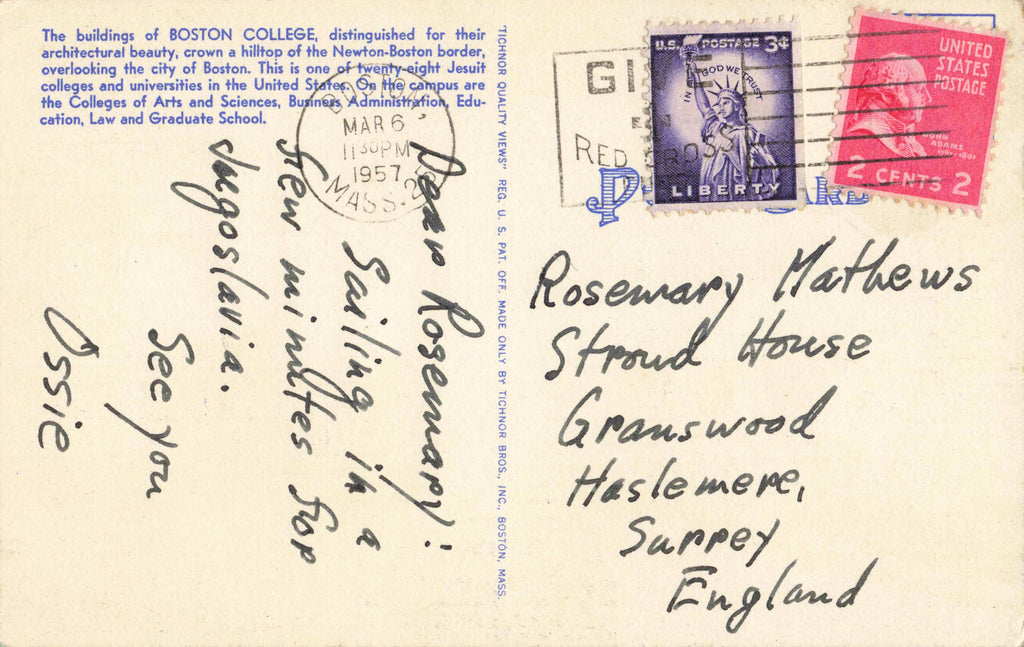 The buildings of BOSTON COLLEGE, distinguished for their
architectural beauty, crown a hilltop of the Newton-Boston border,
overlooking the city of Boston. This is one of twenty-eight Jesuit
colleges and universities in the United States. On the campus are
the Colleges of Arts and Sciences, Business Administration, Edu-
cation, Law and Graduate School.
BOSTON,
MAR 6
11 30 PM
1957
MASS. 25
Dear Rosemary:
Sailing in a
few minutes for
Jugoslavia.
See you
Ossie
"TICHNOR QUALITY VIEWS" REG. U. S. PAT. OFF. MADE ONLY BY TICHNOR BROS., INC., BOSTON, MASS.
GIVE
RED CROSS
U.S. POSTAGE 3¢
IN GOD WE TRUST
LIBERTY
UNITED
STATES
POSTAGE
JOHN
ADAMS
1797-1801
2 CENTS 2
Rosemary Mathews
Stroud House
Granswood
Haslemere,
Surrey
England